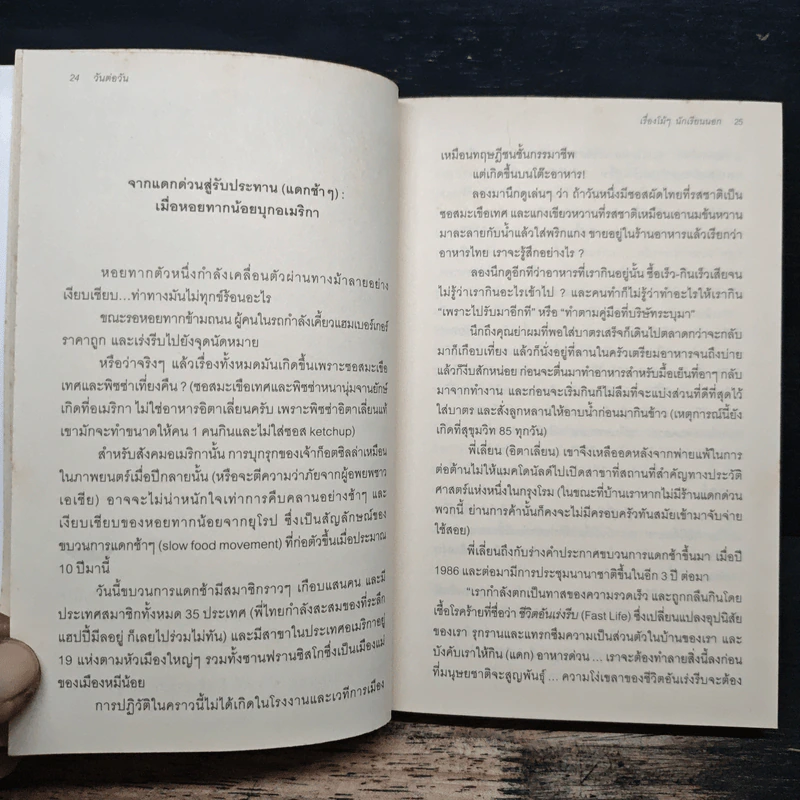 24 วันต่อวัน
จากแดกด่วนสู่รับประทาน (แดกช้าๆ) :
เมื่อหอยทากน้อยบุกอเมริกา
หอยทากตัวหนึ่งกำลังเคลื่อนตัวผ่านทางม้าลายอย่าง
เงียบเชียบ...ท่าทางมันไม่ทุกข์ร้อนอะไร
ขณะรอหอยทากข้ามถนน ผู้คนในรถกำลังเคี้ยวแฮมเบอร์เกอร์
ราคาถูก และเร่งรีบไปยังจุดนัดหมาย
หรือว่าจริงๆ แล้วเรื่องทั้งหมดมันเกิดขึ้นเพราะซอสมะเขือ
เทศและพิซซ่าเที่ยงคืน ? (ซอสมะเขือเทศและพิซซ่าหนานุ่มจานยักษ์
เกิดที่อเมริกา ไม่ใช่อาหารอิตาเลี่ยนครับ เพราะพิซซ่าอิตาเลี่ยนแท้
เขามักจะทำขนาดให้คน 1 คนกินและไม่ใส่ซอส ketchup)
สำหรับสังคมอเมริกานั้น การบุกรุกของเจ้าก็อตซิลล่าเหมือน
ในภาพยนตร์เมื่อปีกลายนั้น (หรือจะตีความว่าภัยจากผู้อพยพชาว
เอเชีย) อาจจะไม่น่าหนักใจเท่าการคืบคลานอย่างช้าๆ และ
เงียบเชียบของหอยทากน้อยจากยุโรป ซึ่งเป็นสัญลักษณ์ของ
ขบวนการแดกช้าๆ (slow food movement) ที่ก่อตัวขึ้นเมื่อประมาณ
10 ปีมานี้
วันนี้ขบวนการแดกช้ามีสมาชิกราวๆ เกือบแสนคน และมี
ประเทศสมาชิกทั้งหมด 35 ประเทศ (พี่ไทยกำลังสะสมของที่ระลึก
แฮปปี้มีลอยู่ ก็เลยไปร่วมไม่ทัน) และมีสาขาในประเทศอเมริกาอยู่
19 แห่งตามหัวเมืองใหญ่ๆ รวมทั้งซานฟรานซิสโกซึ่งเป็นเมืองแม่
ของเมืองหมีน้อย
การปฏิวัติในคราวนี้ไม่ได้เกิดในโรงงานและเวทีการเมือง
เรื่องโม้ๆ นักเรียนนอก 25
เหมือนทฤษฎีชนชั้นกรรมาชีพ
แต่เกิดขึ้นบนโต๊ะอาหาร!
ลองมานึกดูเล่นๆ ว่า ถ้าวันหนึ่งมีซอสผัดไทยที่รสชาติเป็น
ซอสมะเขือเทศ และแกงเขียวหวานที่รสชาติเหมือนเอานมข้นหวาน
มาละลายกับน้ำแล้วใส่พริกแกง ขายอยู่ในร้านอาหารแล้วเรียกว่า
อาหารไทย เราจะรู้สึกอย่างไร ?
ลองนึกดูอีกทีว่าอาหารที่เรากินอยู่นั้น ซื้อเร็ว-กินเร็วเสียจน
ไม่รู้ว่าเรากินอะไรเข้าไป ? และคนทำก็ไม่รู้ว่าทำอะไรให้เรากิน
"เพราะไปรับมาอีกที" หรือ "ทำตามคู่มือที่บริษัทระบุมา"
นึกถึงคุณย่าผมที่พอใส่บาตรเสร็จก็เดินไปตลาดกว่าจะกลับ
มาก็เกือบเที่ยง แล้วก็นั่งอยู่ที่ลานในครัวเตรียมอาหารจนถึงบ่าย
แล้วก็งีบสักหน่อย ก่อนจะตื่นมาทำอาหารสำหรับมื้อเย็นที่อาๆ กลับ
มาจากทำงาน และก่อนจะเริ่มกินก็ไม่ลืมที่จะแบ่งส่วนที่ดีที่สุดไว้
ใส่บาตร และสั่งลูกหลานให้อาบน้ำก่อนมากินข้าว (เหตุการณ์นี้ยัง
เกิดที่สุขุมวิท 85 ทุกวัน)
พี่เลี่ยน (อิตาเลี่ยน) เขาจึงเหลืออดหลังจากพ่ายแพ้ในการ
ต่อต้านไม่ให้แมคโดนัลด์ไปเปิดสาขาที่สถานที่สำคัญทางประวัติ
ศาสตร์แห่งหนึ่งในกรุงโรม (ในขณะที่บ้านเราหากไม่มีร้านแดกด่วน
พวกนี้ ย่านการค้านั้นก็คงจะไม่มีครอบครัวทันสมัยเข้ามาจับจ่าย
ใช้สอย)
พี่เลี่ยนถึงกับร่างคำประกาศขบวนการแดกช้าขึ้นมา เมื่อปี
1986 และต่อมามีการประชุมนานาชาติขึ้นในอีก 3 ปี ต่อมา
"เรากำลังตกเป็นทาสของความรวดเร็ว และถูกกลืนกินโดย
เชื้อโรคร้ายที่ชื่อว่า ชีวิตอันเร่งรีบ (Fast Life) ซึ่งเปลี่ยนแปลงอุปนิสัย
ของเรา รุกรานและแทรกซึมความเป็นส่วนตัวในบ้านของเรา และ
บังคับเราให้กิน (แดก) อาหารด่วน ... เราจะต้องทำลายสิ่งนี้ลงก่อน
ที่มนุษยชาติจะสูญพันธุ์ ... ความโง่เขลาของชีวิตอันเร่งรีบจะต้อง